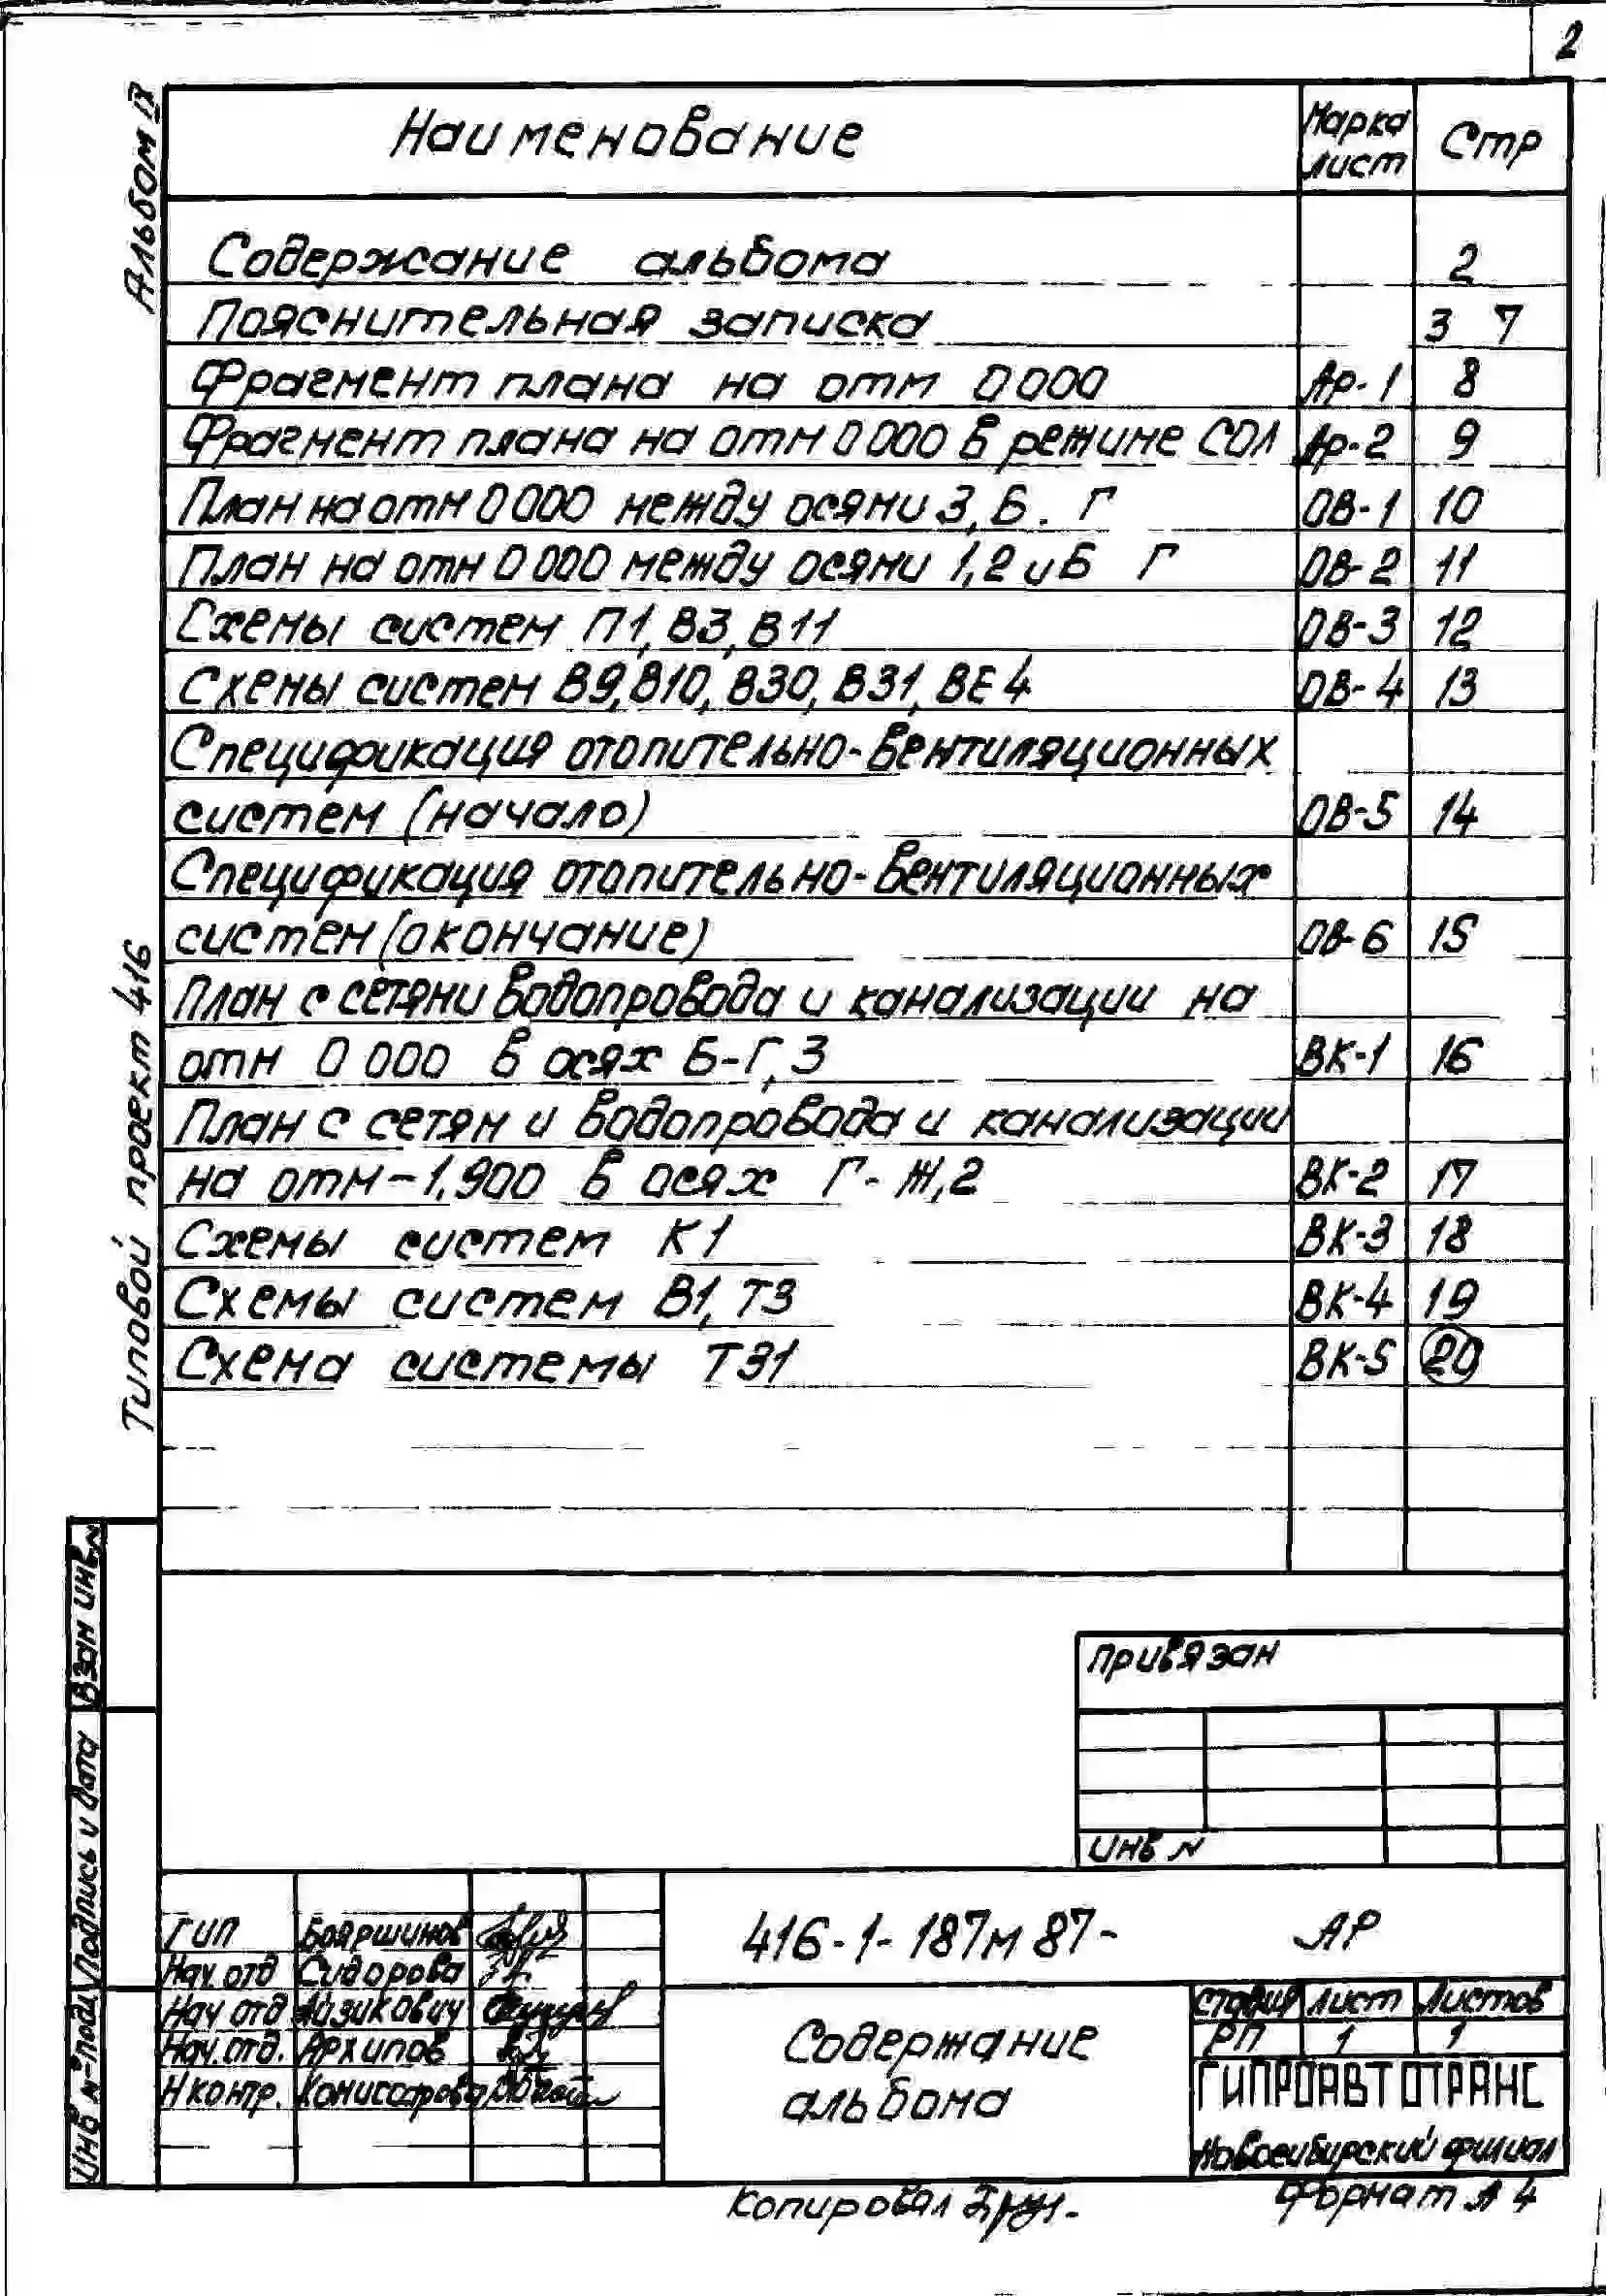 2
Альбом IX
Наименование Марка лист Стр
Содержание альбома 2
Пояснительная записка 3 7
Фрагмент плана на отм 0000 Ар-1 8
Фрагмент плана на отм 0000 в режиме СОЛ Ар-2 9
План на отм 0000 между осями 3, Б. Г ОВ-1 10
План на отм 0000 между осями 1,2 и Б Г ОВ-2 11
Схемы систем П1, В3, В11 ОВ-3 12
Схемы систем В9, В10, В30, В31, ВЕ4 ОВ-4 13
Спецификация отопительно-вентиляционных
систем (начало) ОВ-5 14
Спецификация отопительно-вентиляционных
систем (окончание) ОВ-6 15
План с сетями водопровода и канализации на
отм 0 000 в осях Б-Г, 3 ВК-1 16
План с сетям и водопровода и канализации
на отм -1.900 в осях Г-Ж, 2 ВК-2 17
Схемы систем К1 ВК-3 18
Схемы систем В1, Т3 ВК-4 19
Схема системы Т31 ВК-5 20
Типовой проект 416
Взам инв N
Подпись и дата
Инв №подл
Привязан
Инв N
ГИП Бояршинов
Нач. отд Сидорова
Нач отд Айзикович
Нач. отд. Архипов
Н контр. Комиссарова
416-1-187м 87- АР
Содержание
альбома
стадия лист листов
РП 1 1
ГИПРОАВТОТРАНС
Новосибирский филиал
Копировал
Формат А4